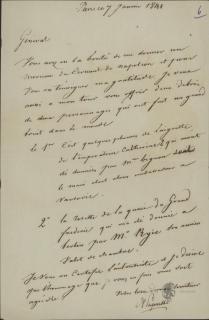 Paris ce 7 Janvier 1841
6
Général
Vous avez eu la bonté de me donner un
Souvenir du Cercueil de Napoléon et pour
Vous en témoigner ma gratitude Je veux
aussi a mon tour vous offrir deux débris
de deux personnages qui ont fait un grand
bruit dans le monde
le 1er C'est quelques plumes de l'aigrette
de l'impératrice Catherine qui m'ont
été données par Mme
le mari était
Varsovie
2e la rosette de la queue du Grand
Frédéric qui m'a été donnée a
Berlin par Mr son ancien
Valet de Chambre
Je vous en Certifie l'authenticité et Je désire
que l'hommage que je vous en fais vous soit
agréable
Votre tout